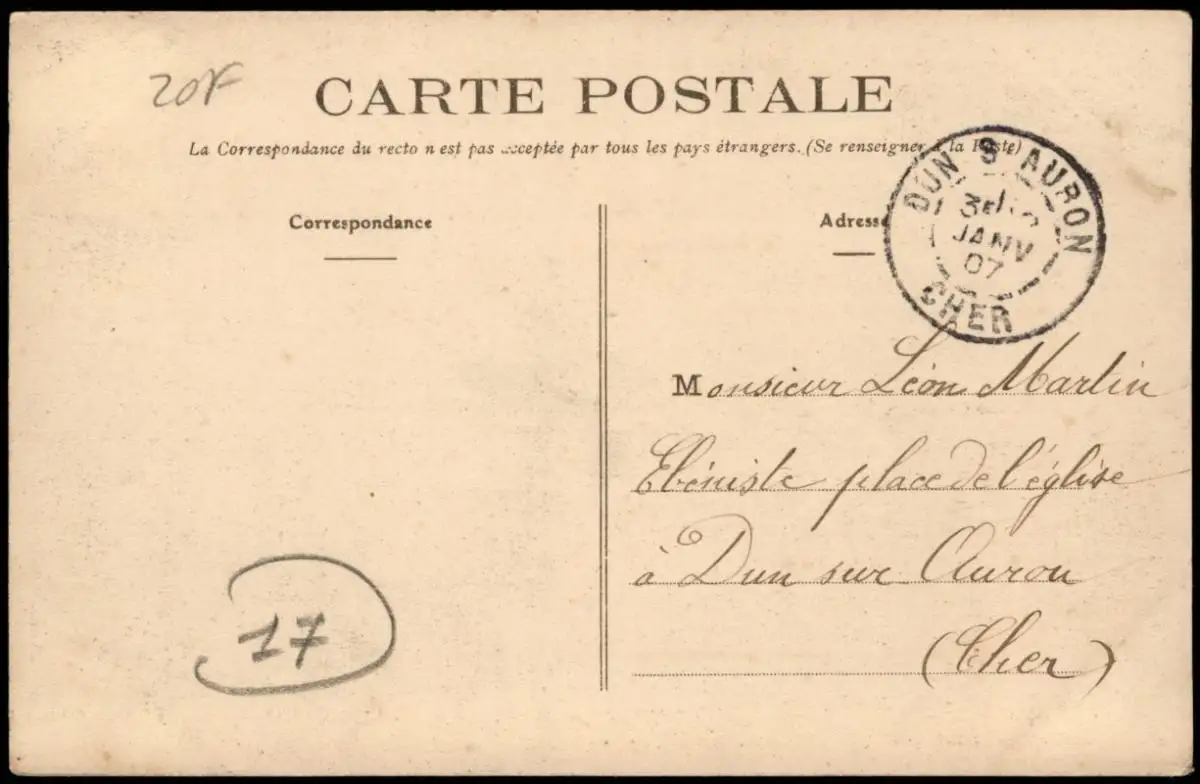 20F
CARTE POSTALE
La Correspondance du recto n'est pas acceptée par tous les pays étrangers. (Se renseigner à la Poste)
Correspondance
Adresse
DUN S AURON
JANV
07
CHER
Monsieur Léon Martin
Ebéniste place de l'église
à Dun sur Auron
(Cher)
17